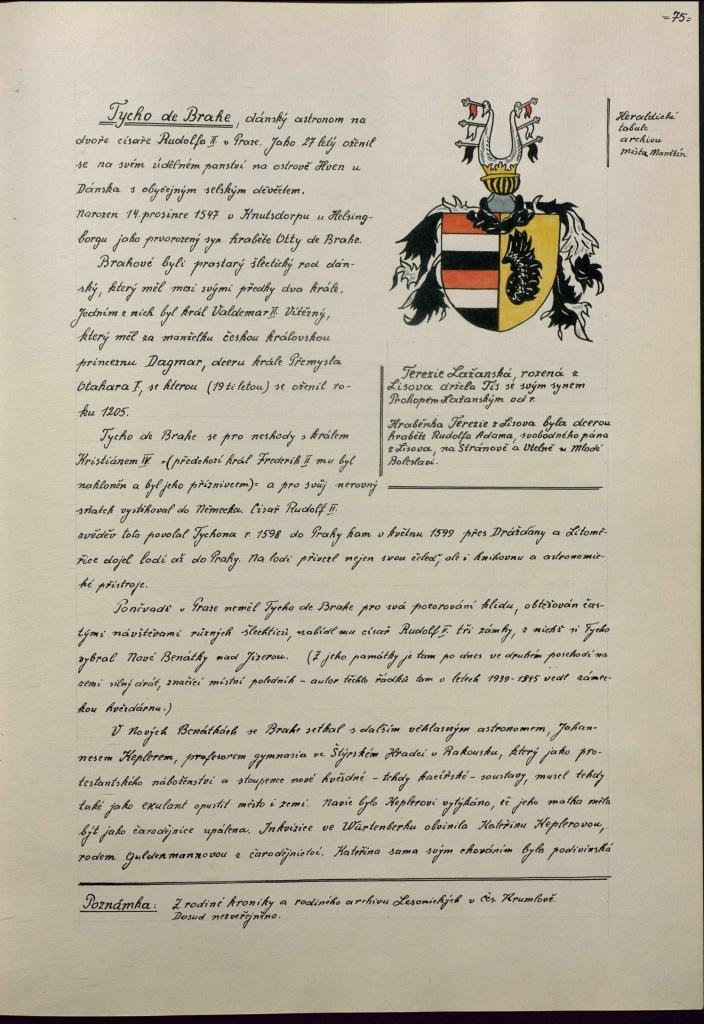 =75=
Heraldické
tabule
archivu
města Manětín
Tycho de Brahe, dánský astronom na
dvoře císaře Rudolfa II. v Praze. Jako 27 letý oženil
se na svém údělném panství na ostrově Hven u
Dánska s obyčejným selským děvčetem.
Narozen 14. prosince 1547 v Knutsdorpu u Helsing-
borgu jako prvorozený syn hraběte Otty de Brahe.
Brahové byli prastarý šlechtický rod dán-
ský, který měl mezi svými předky dva krále.
Jedním z nich byl král Valdemar II. Vítězný,
který měl za manželku českou královskou
princeznu Dagmar, dceru krále Přemysla
Otakara I, se kterou (19 ti letou) se oženil ro-
ku 1205.
Tycho de Brahe se pro neshody s králem
Kristiánem IV =(předchozí král Frederik II mu byl
nakloněn a byl jeho příznivcem)= a pro svůj nerovný
sňatek vystěhoval do Německa. Císař Rudolf II.
zvěděv toto povolal Tychona r. 1598 do Prahy kam v květnu 1599 přes Drážďany a Litomě-
řice dojel lodí až do Prahy. Na lodi přivezl nejen svou čeleď, ale i knihovnu a astronomic-
ké přístroje.
Terezie Lažanská, rozená z
Lisova držela Tis se svým synem
Prokopem Lažanským od r.
Hraběnka Terezie z Lisova byla dcerou
hraběte Rudolfa Adama, svobodného pána
z Lisova, na Stránově a Vtelně u Mladé
Boleslavi.
Poněvadž v Praze neměl Tycho de Brahe pro svá pozorování klidu, obtěžován čas-
tými návštěvami různých šlechticů, nabídl mu císař Rudolf II. tři zámky, z nichž si Tycho
vybral Nové Benátky nad Jizerou. (Z jeho památky je tam po dnes ve druhém poschodí na
zemi silný drát, značící místní poledník - autor těchto řádků tam v letech 1939-1945 vedl zámec-
kou hvězdárnu.)
V Nových Benátkách se Brahe setkal s dalším věhlasným astronomem, Johan-
nesem Keplerem, profesorem gymnasia ve Štýrském Hradci v Rakousku, který jako pro-
testantského náboženství a stoupenec nové hvězdné - tehdy kacířské - soustavy, musel tehdy
také jako exulant opustit město i zemi. Navíc bylo Keplerovi vytýkáno, že jeho matka měla
být jako čarodějnice upálena. Inkvizice ve Würtenberku obvinila Kateřinu Keplerovou,
rodem Guldenmannovou z čarodějnictví. Kateřina sama svým chováním byla podivínská
Poznámka: Z rodiné kroniky a rodiného archivu Lesonických v Čes. Krumlově.
Dosud nezveřejněno.